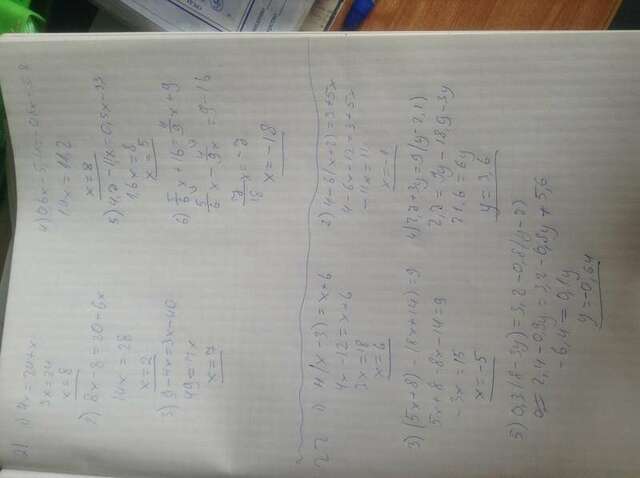 21 1) 4x = 24+x
3x=24
x=8
2) 8x-8=20-6x
14x = 28
x=2
3) 9-4x=3x-40
49=7x
x=7
x=8
5) 4,2-1,1x=0,5x-3,8
1,6x=8
x=5
6) 5/6 x+16=4/9 x+9
5/6 x - 4/9 x = 9-16
7/18 x=-7
x=-18
22 1) 4(x-3)=x+6
4x-12=x+6
3x=18
x=6
2) 4-6(x+2)=3+5x
4-6x+12=3+5x
-11x=11
x=-1
3) (5x+8)-(8x+14)=9
5x+8-8x-14=9
-3x=15
x=-5
4) 2,7+3y=9(y-2,1)
2,7=9y-18,9-3y
21,6=6y
y=3,6
5) 0,3(8-3y)=3,2-0,8(y-7)
2,4-0,9y=3,2-0,8y+5,6
-6,4=0,1y
y=-0,64